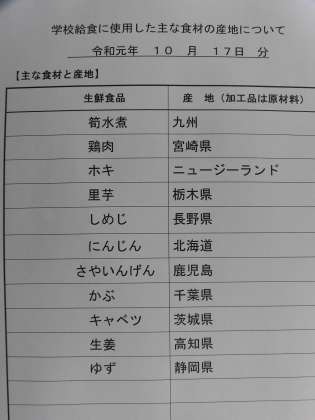 学校給食に使用した主な食材の産地について
令和元年 10 月 17日 分
【主な食材と産地】
生鮮食品 産 地（加工品は原材料）
筍水煮 九州
鶏肉 宮崎県
ホキ ニュージーランド
里芋 栃木県
しめじ 長野県
にんじん 北海道
さやいんげん 鹿児島
かぶ 千葉県
キャベツ 茨城県
生姜 高知県
ゆず 静岡県